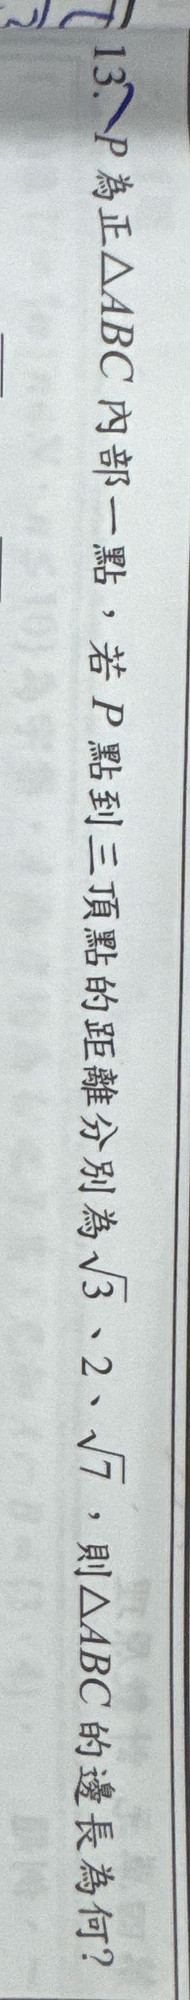 13. P 為正△ABC 內部一點，若 P 點到三頂點的距離分別為√3、2、√7，則△ABC 的邊長為何？